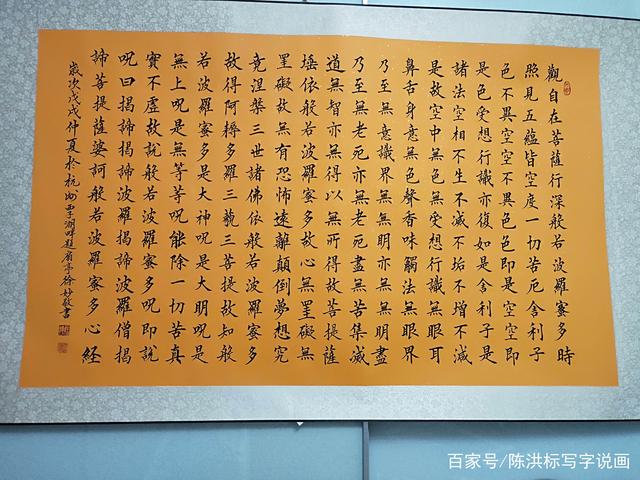 觀自在菩薩行深般若波羅蜜多時
照見五蘊皆空度一切苦厄舍利子
色不異空空不異色色即是空空即
是色受想行識亦復如是舍利子是
諸法空相不生不滅不垢不增不減
是故空中無色無受想行識無眼耳
鼻舌身意無色聲香味觸法無眼界
乃至無意識界無無明亦無無明盡
乃至無老死亦無老死盡無苦集滅
道無智亦無得以無所得故菩提薩
埵依般若波羅蜜多故心無罣礙無
罣礙故無有恐怖遠離顛倒夢想究
竟涅槃三世諸佛依般若波羅蜜多
故得阿耨多羅三藐三菩提故知般
若波羅蜜多是大神呪是大明呪是
無上呪是無等等呪能除一切苦真
實不虛故說般若波羅蜜多呪即說
呪曰揭諦揭諦波羅揭諦波羅僧揭
諦菩提薩婆訶般若波羅蜜多心經
歲次戊戌仲夏於杭州西子湖畔徐妙敬書
百家号/陈洪标写字说画